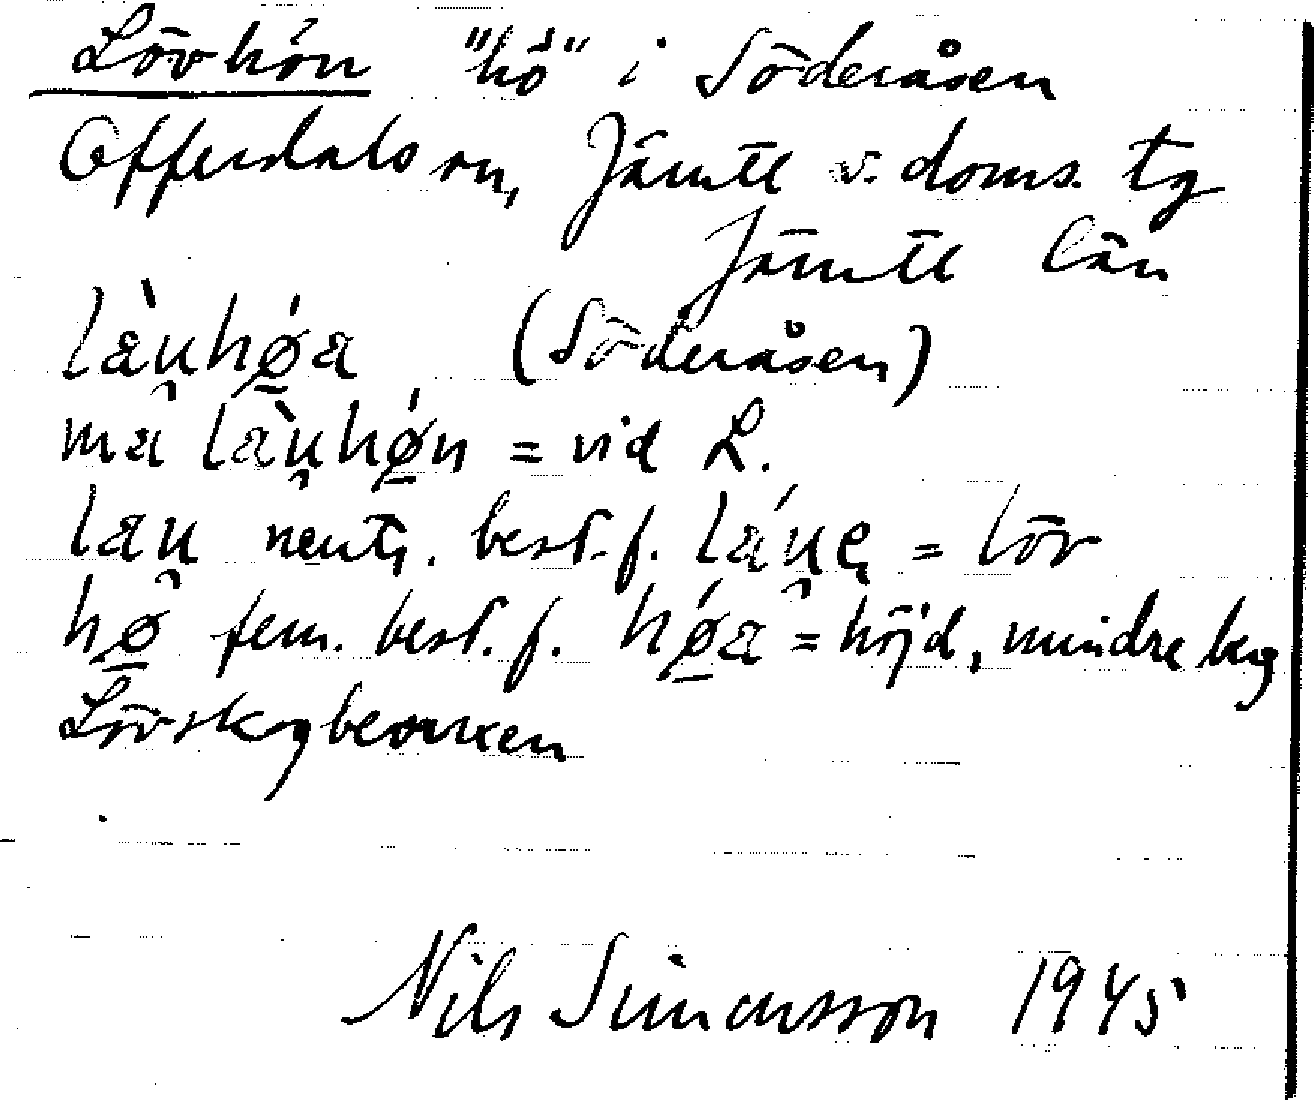 Lövhön "hö" i Söderåsen
Offerdals sn, Jämtl v. doms. tg
Jämtl län
làu̯hǿ̱a (Söderåsen)
ma làu̯hǿ̱n = vid L.
lau̯ neutr. best. f. láu̯e = löv
hø̱ fem. best. f. hǿ̱a = höjd, mindre berg
Lövskogbevuxen
Nils Simonsson 1945